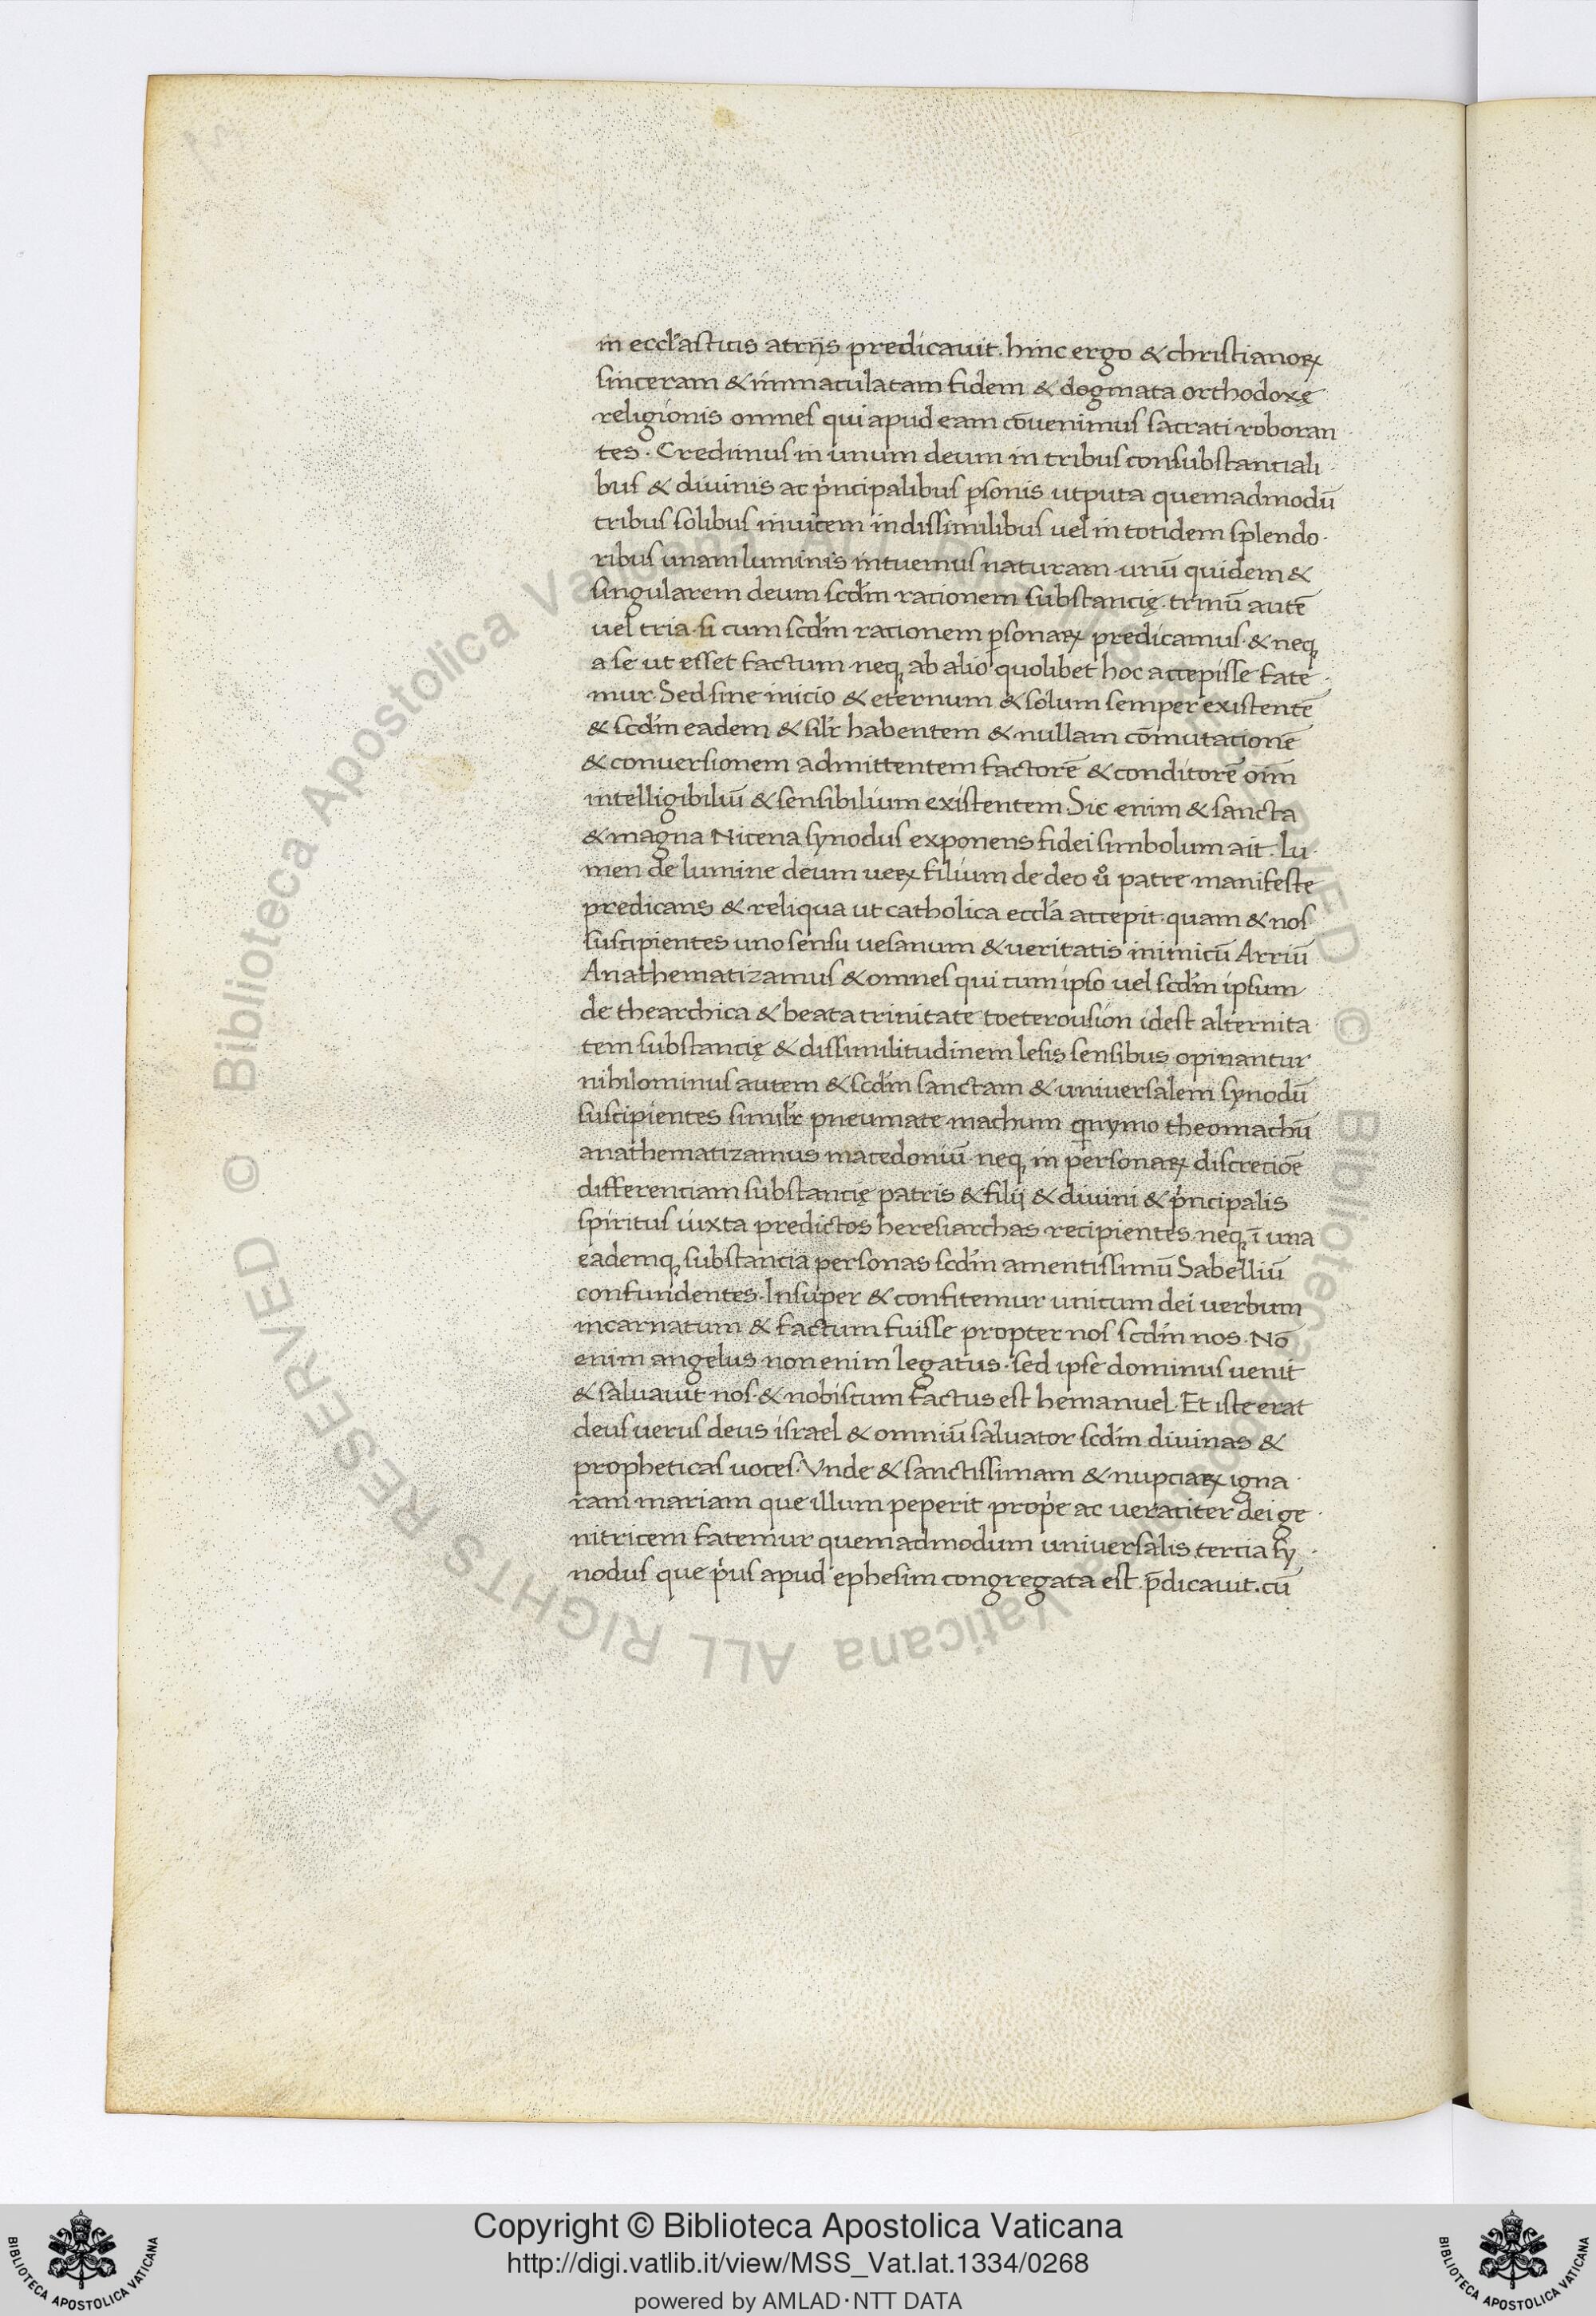 in eccl'asticis atrijs predicauit. hinc ergo & christianoꝝ
sinceram & immaculatam fidem & dogmata orthodoxę
religionis omnes qui apud eam cōuenimus sacrati roboran
tes. Credimus in unum deum in tribus consubstantiali
bus & diuinis ac pͥncipalibus ꝑsonis utputa quemadmodū
tribus solibus inuicem indissimilibus uel in totidem splendo
ribus unam luminis intuemus naturam unū quidem &
singularem deum scd'm racionem substancię. trinū autē
uel tria. si cum scd'm racionem ꝑsonaꝝ predicamus. & neq;
a se ut esset factum neq; ab alio quolibet hoc accepisse fate
mur. Sed sine inicio & eternum & solum semper existentē
& scd'm eadem & sil'r habentem & nullam cōmutacionē
& conuersionem admittentem factorē & conditorē oīm
intelligibiliū & sensibilium existentem. Sic enim & sancta
& magna Nicena synodus exponens fidei simbolum ait. Lu
men de lumine deum ueꝝ filium de deo uͦ patre manifeste
predicans & reliqua ut catholica eccl'a accepit. quam & nos
suscipientes uno sensu uesanum & ueritatis inimicū Arriū
Anathematizamus & omnes qui cum ipso uel scd'm ipsum
de thearchica & beata trinitate toeterousion idest alternita
tem substancię & dissimilitudinem lesis sensibus opinantur
nihilominus autem & scd'm sanctam & uniuersalem synodū
suscipientes simil'r pneumate machum quymo theomachū
anathematizamus macedoniū. neq; in personaꝝ discretiōē
differenciam substancię patris & filij & diuini & pͥncipalis
spiritus iuxta predictos heresiarchas recipientes. neq; ī una
eademq; substancia personas scd'm amentissimū Sabelliū
confundentes. Insuper & confitemur unicum dei uerbum
incarnatum & factum fuisse propter nos scd'm nos. Nō
enim angelus non enim legatus. sed ipse dominus uenit
& saluauit nos. & nobiscum factus est hemanuel. Et iste erat
deus uerus deus israel & omniū saluator scd'm diuinas &
propheticas uoces. Vnde & sanctissimam & nupciaꝝ igna
ram mariam que illum peperit propͥe ac ueraciter dei ge
nitricem fatemur quemadmodum uniuersalis tercia sy
nodus que pͥus apud ephesim congregata est p̄dicauit. cū
© Biblioteca Apostolica Vaticana ALL RIGHTS RESERVED
© Biblioteca Apostolica Vaticana ALL RIGHTS RESERVED
Copyright © Biblioteca Apostolica Vaticana
http://digi.vatlib.it/view/MSS_Vat.lat.1334/0268
powered by AMLAD·NTT DATA
BIBLIOTECA APOSTOLICA VATICANA
BIBLIOTECA APOSTOLICA VATICANA